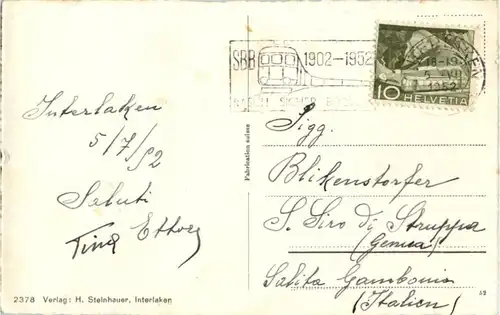 SBB 1902-1952
INTERLAKEN
18-19
1952
10
HELVETIA
Interlaken
5/7/52
Saluti
Tina
Fabrication suisse
Sigg.
Blikenstorfer
S. Siro di Struppa
(Genua)
Salita Gambonia
(Italien)
52
2378 Verlag: H. Steinhauer, Interlaken